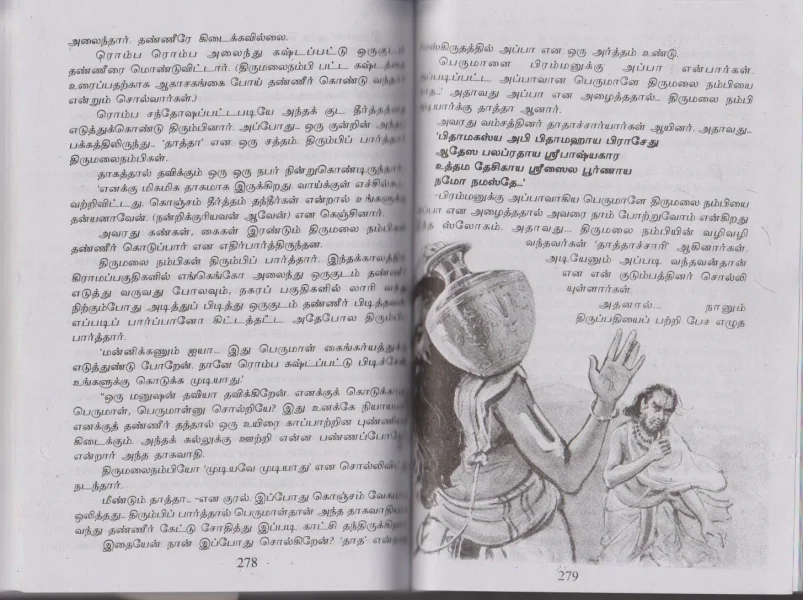 அலைந்தார். தண்ணீரே கிடைக்கவில்லை.
ரொம்ப ரொம்ப அலைந்து கஷ்டப்பட்டு ஒருகுடம்
தண்ணீரை மொண்டுவிட்டார். (திருமலைநம்பி பட்ட கஷ்டத்தை
உரைப்பதற்காக ஆதாசகங்கை போய் தண்ணீர் கொண்டு
என்றும் சொல்வார்கள்.)
ரொம்ப சந்தோஷப்பட்டபடியே அந்தக் குட தீர்த்தத்தை
எடுத்துக்கொண்டு திரும்பினார். அப்போது... ஒரு குன்றின்
பக்கத்திலிருந்து... 'தாத்தா' என ஒரு சத்தம். திரும்பிப்
திருமலைநம்பிகள்.
தாகத்தால் தவிக்கும் ஒரு நபர் நின்றுகொண்டிருந்தார்.
'எனக்கு மிகமிக தாகமாக இருக்கிறது. வாய்க்குள்
வற்றிவிட்டது. கொஞ்சம் தீர்த்தம் தந்தீர்கள் என்றால்
தன்யனாவேன். (நன்றிக்குரியவன் ஆவேன்) என கெஞ்சினார்.
அவரது கண்கள், கைகள் இரண்டும் திருமலை நம்பிகள்
தண்ணீர் கொடுப்பார் என எதிர்பார்த்திருந்தன.
திருமலை நம்பிகள் திரும்பிப் பார்த்தார். இந்தக்காலத்தில்
கிராமப்பகுதிகளில் எங்கெங்கோ அலைந்து ஒருகுடம்
எடுத்து வருவது போலவும், நகரப் பகுதிகளில் லாரி
நிற்கும்போது அடித்துப் பிடித்து ஒருகுடம் தண்ணீர்
எப்படிப் பார்ப்பானோ கிட்டத்தட்ட அதேபோல
பார்த்தார்.
'மன்னிக்கணும் ஐயா... இது பெருமாள் கைங்கர்யத்துக்கு
எடுத்துண்டு போறேன். நானே ரொம்ப கஷ்டப்பட்டு
உங்களுக்கு கொடுக்க முடியாது.'
"ஒரு மனுஷன் தவியா தவிக்கிறேன். எனக்குக்
பெருமாள், பெருமாள்னு சொல்றியே? இது உனக்கே
எனக்குத் தண்ணீர் தந்தால் ஒரு உயிரை காப்பாற்றின
கிடைக்கும். அந்தக் கல்லுக்கு ஊற்றி என்ன
என்றார் அந்த தாகவாதி.
திருமலைநம்பியோ 'முடியவே முடியாது' என
நடந்தார்.
மீண்டும் தாத்தா... -என குரல். இப்போது கொஞ்சம்
ஒலித்தது... திரும்பிப் பார்த்தால் பெருமாள்தான் அந்த
வந்து தண்ணீர் கேட்டு சோதித்து இப்படி காட்சி
இதையேன் நான் இப்போது சொல்கிறேன்? 'தாத'
278
அப்பா என ஒரு அர்த்தம் உண்டு.
பெருமானை பிரம்மனுக்கு அப்பா என்பார்கள்.
அப்பாவான பெருமாளே திருமலை நம்பியை
அதாவது அப்பா என அழைத்ததால்... திருமலை நம்பி
தாத்தா ஆனார்.
அவரது வம்சத்தினர் தாதாச்சார்யார்கள் ஆயினர். அதாவது...
'பிதாமகஸ்ய அபி பிதாமஹாய பிராசேது
ஆதேஸ பலப்ரதாய ஸ்ரீபாஷ்யகார
உத்தம தேசிகாய ஸ்ரீஸைல பூர்ணாய
நமோ நமஸ்தே...'
-பிரம்மனுக்கு அப்பாவாகிய பெருமாளே திருமலை நம்பியை
என அழைத்ததால் அவரை நாம் போற்றுவோம் என்கிறது
ஸ்லோகம். அதாவது... திருமலை நம்பியின் வழிவழி
வந்தவர்கள் 'தாத்தாச்சாரி' ஆகினார்கள்.
அடியேனும் அப்படி வந்தவன்தான்
என என் குடும்பத்தினர் சொல்லி
யுள்ளார்கள்.
அதனால்... நானும்
திருப்பதியைப் பற்றி பேச எழுத
279